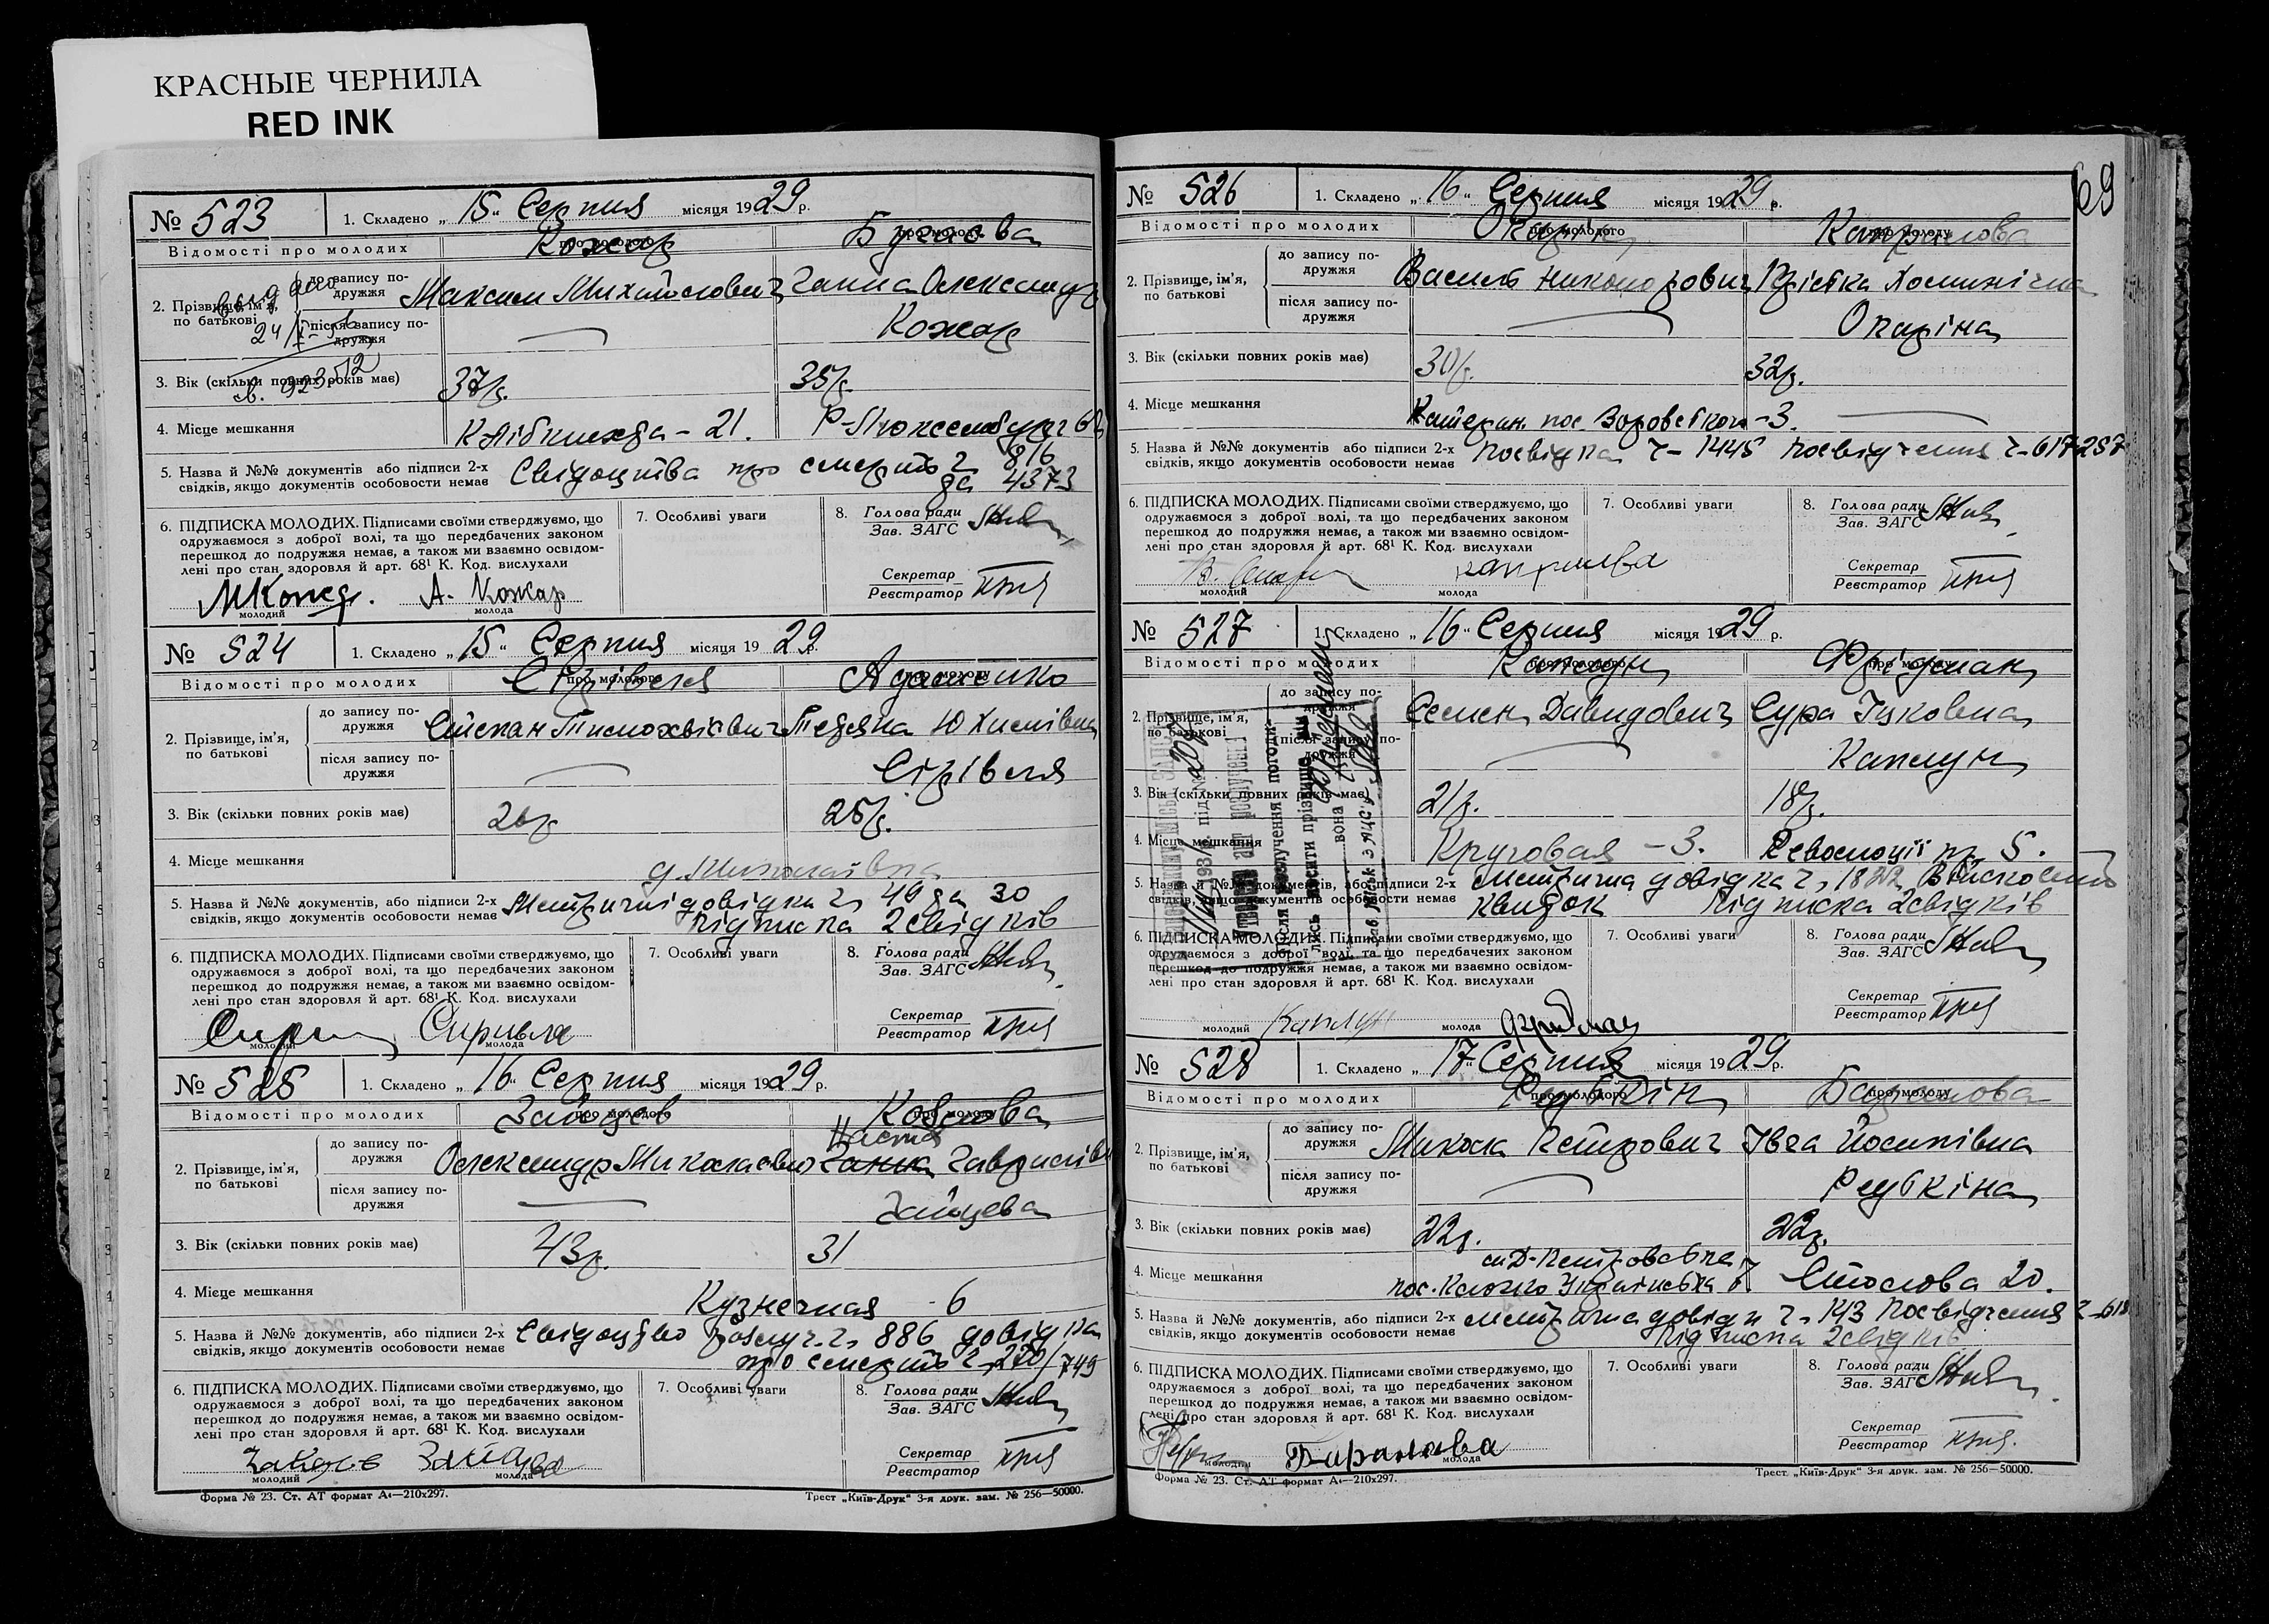 КРАСНЫЕ ЧЕРНИЛА
RED INK
№ 523
1. Складено „15“ Серпня місяця 1929 р.
Відомості про молодих
про молодого
про молоду
Кожар
2. Прізвище, ім'я, по батькові
до запису подружжя
Максим Михайлович
Ганна Олександр
після запису подружжя
Кожар
3. Вік (скільки повних років має)
37р.
35р.
4. Місце мешкання
К Лібкнехта – 21.
Р-Люксембург
5. Назва й №№ документів або підписи 2-х
свідків, якщо документів особовости немає
Свідоцтва про смерть ч 816
да 4373
6. ПІДПИСКА МОЛОДИХ. Підписами своїми стверджуємо, що
одружаємося з доброї волі, та що передбачених законом
перешкод до подружжя немає, а також ми взаємно освідом-
лені про стан здоровля й арт. 68¹ К. Код. вислухали
А. Кожар
молодий
молода
7. Особливі уваги
8. Голова ради
Зав. ЗАГС
Секретар
Реєстратор
№ 524
1. Складено „15“ Серпня місяця 1929 р.
Відомості про молодих
про молодого
про молоду
Сірівля
Адаменко
2. Прізвище, ім'я, по батькові
до запису подружжя
Степан Тимохвієвич
Тетяна Юхимівна
після запису подружжя
Сірівля
3. Вік (скільки повних років має)
26р
25р.
4. Місце мешкання
д. Миколаївка
5. Назва й №№ документів, або підписи 2-х
свідків, якщо документів особовости немає
Метричні довідка ч 49 да 30
Підписка 2 свідків
6. ПІДПИСКА МОЛОДИХ. Підписами своїми стверджуємо, що
одружаємося з доброї волі, та що передбачених законом
перешкод до подружжя немає, а також ми взаємно освідом-
лені про стан здоровля й арт. 68¹ К. Код. вислухали
Сиривля
молодий
молода
7. Особливі уваги
8. Голова ради
Зав. ЗАГС
Секретар
Реєстратор
№ 525
1. Складено „16“ Серпня місяця 1929 р.
Відомості про молодих
про молодого
про молоду
Зайцев
2. Прізвище, ім'я, по батькові
до запису подружжя
Олександр Миколаєвич
Настя
Ганна Гаврилівн
після запису подружжя
Зайцева
3. Вік (скільки повних років має)
43р.
31
4. Місце мешкання
Кузнечная - 6
5. Назва й №№ документів, або підписи 2-х
свідків, якщо документів особовости немає
Свідоцтво розлуч. ч. 886 довідка
про смерть ч. 270/749
6. ПІДПИСКА МОЛОДИХ. Підписами своїми стверджуємо, що
одружаємося з доброї волі, та що передбачених законом
перешкод до подружжя немає, а також ми взаємно освідом-
лені про стан здоровля й арт. 68¹ К. Код. вислухали
Зайцев
Зайцева
молодий
молода
7. Особливі уваги
8. Голова ради
Зав. ЗАГС
Секретар
Реєстратор
Форма № 23. Ст. АТ формат А₄—210х297.
Трест „Київ-Друк“ 3-я друк. зам. № 256—50000.
69
№ 526
1. Складено „16“ Серпня місяця 1929 р.
Відомості про молодих
про молодого
про молоду
Опарін
Капралова
2. Прізвище, ім'я, по батькові
до запису подружжя
Василь Никонорович
після запису подружжя
Опаріна
3. Вік (скільки повних років має)
30р.
32р.
4. Місце мешкання
Катерин. пос. Воровського – 3.
5. Назва й №№ документів або підписи 2-х
свідків, якщо документів особовости немає
Посвідка ч – 1445
Посвідчення ч – 617-257
6. ПІДПИСКА МОЛОДИХ. Підписами своїми стверджуємо, що
одружаємося з доброї волі, та що передбачених законом
перешкод до подружжя немає, а також ми взаємно освідом-
лені про стан здоровля й арт. 68¹ К. Код. вислухали
молодий
молода
7. Особливі уваги
8. Голова ради
Зав. ЗАГС
Секретар
Реєстратор
№ 527
1. Складено „16“ Серпня місяця 1929 р.
Відомості про молодих
про молодого
про молоду
Каплун
Фрідман
2. Прізвище, ім'я, по батькові
до запису подружжя
Семен Давидович
Сура Іцковна
після запису подружжя
Каплун
3. Вік (скільки повних років має)
21р.
18р.
4. Місце мешкання
Круговая – 3.
Революції 5.
5. Назва й №№ документів, або підписи 2-х
свідків, якщо документів особовости немає
метрична довідка ч. 1822
квиток Підписка 2 свідків
6. ПІДПИСКА МОЛОДИХ. Підписами своїми стверджуємо, що
одружаємося з доброї волі, та що передбачених законом
перешкод до подружжя немає, а також ми взаємно освідом-
лені про стан здоровля й арт. 68¹ К. Код. вислухали
молодий
Каплун
молода
Фридман
7. Особливі уваги
8. Голова ради
Зав. ЗАГС
Секретар
Реєстратор
№ 528
1. Складено „17“ Серпня місяця 1929 р.
Відомості про молодих
про молодого
про молоду
Баранова
2. Прізвище, ім'я, по батькові
до запису подружжя
Микола Петрович
Івга Йосипівна
після запису подружжя
Реубкіна
3. Вік (скільки повних років має)
22р.
22р.
4. Місце мешкання
ст Д-Петровська
Столова 20.
5. Назва й №№ документів, або підписи 2-х
свідків, якщо документів особовости немає
Посвідчення ч – 618
Підписка 2 свідків
6. ПІДПИСКА МОЛОДИХ. Підписами своїми стверджуємо, що
одружаємося з доброї волі, та що передбачених законом
перешкод до подружжя немає, а також ми взаємно освідом-
лені про стан здоровля й арт. 68¹ К. Код. вислухали
Баранава
молодий
молода
7. Особливі уваги
8. Голова ради
Зав. ЗАГС
Секретар
Реєстратор
Форма № 23. Ст. АТ формат А₄—210х297.
Трест „Київ-Друк“ 3-я друк. зам. № 256—50000.